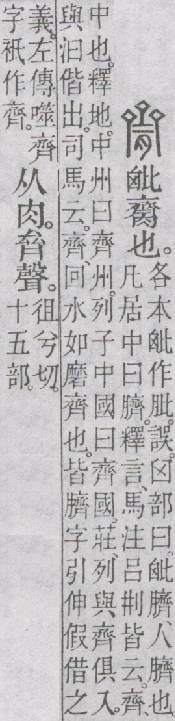 𣬈臍也。各本𣬈作肶。誤。囟部曰。𣬈臍、人臍也
凡居中曰臍。釋言、馬注吕刑皆云。齊、
中也。釋地。中州曰齊州。列子中國曰齊國。莊、列與齊俱入
與汩偕出。司馬云。齊、回水如磨齊也。皆臍字引伸假借之
義。左傳噬齊
字衹作齊。
从肉。齊聲。徂兮切。
十五部。